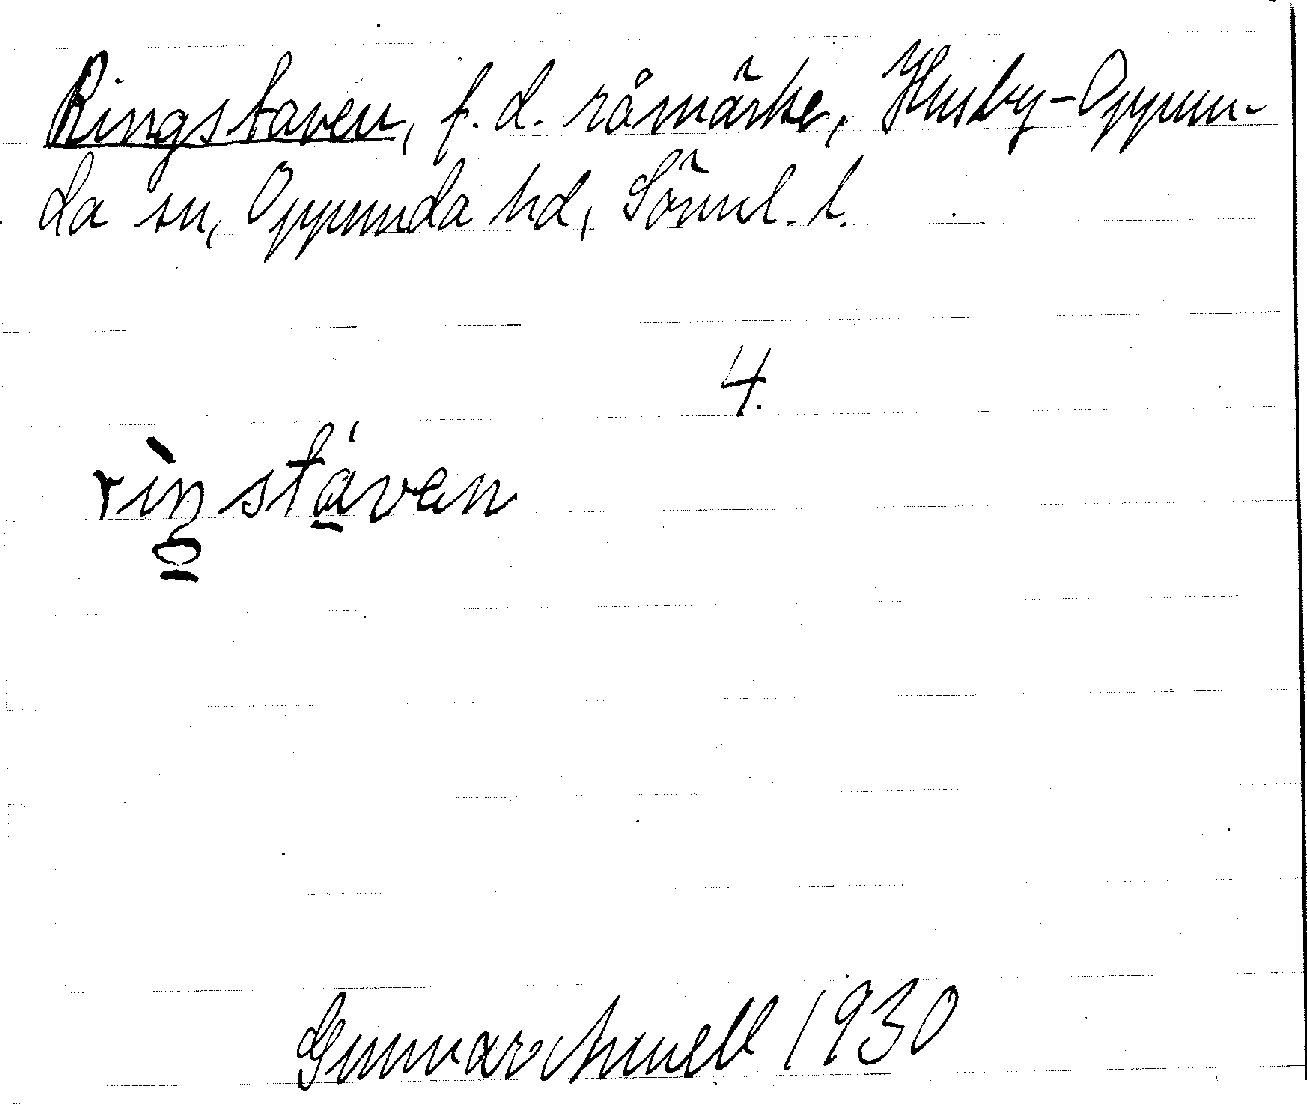 Ringstaven, f. d. råmärke, Husby-Oppun-
da sn, Oppunda hd, Söml. l.
4.
rìŋstáven
Gunnar Amell 1930